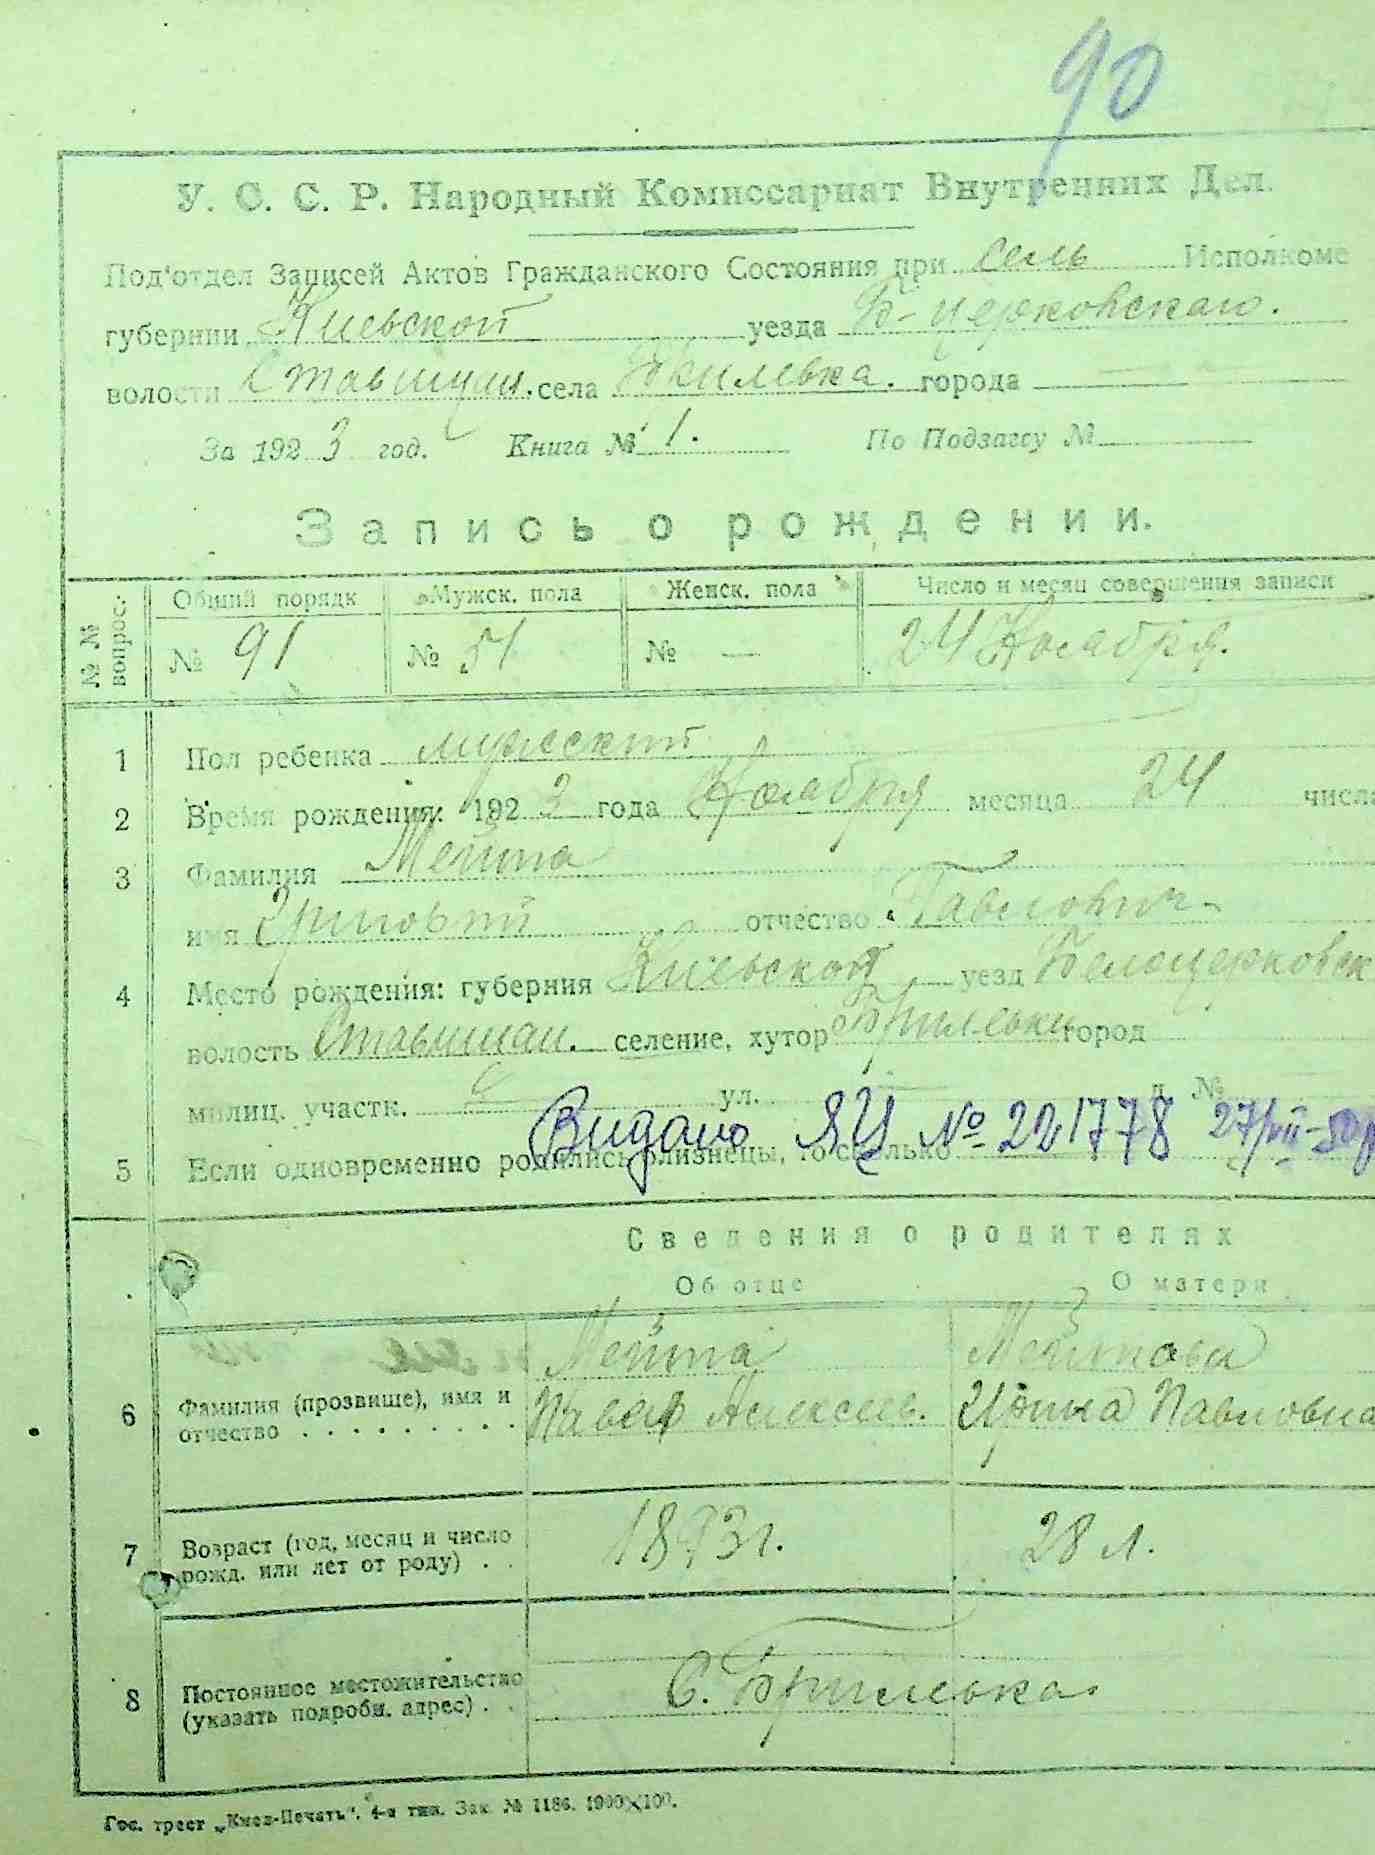 90
У. С. С. Р. Народный Комиссариат Внутренних Дел.
Под'отдел Записей Актов Гражданского Состояния при сель Исполкоме
губернии Киевской уезда Б-церковскаго.
волости Ставищан. села Брилевка. города
За 1923 год. Книга № 1. По Подзагсу №
Запись о рождении.
№№ вопрос. Общий порядк Мужск. пола Женск. пола Число и месяц совершения записи
№ 91 № 51 № — 24 Ноября.
1 Пол ребенка мужской
2 Время рождения: 1923 года Ноября месяца 24 числа
3 Фамилия Мейта
имя Григорий отчество Павлович
4 Место рождения: губерния Киевской уезд Белоцерковск
волость Ставищан. селение, хутор Брилевки город
милиц. участк. ул. д. №
Видано ЯЦ № 221778 27/VII-50р
5 Если одновременно родились близнецы, то сколько
Сведения о родителях
Об отце О матери
Мейта Мейтова
6 Фамилия (прозвище), имя и отчество Павел Алексеев. Ирина Павловна
7 Возраст (год, месяц и число рожд. или лет от роду) 1893г. 28 л.
8 Постоянное местожительство (указать подробн. адрес) С. Брилевка.
Гос. трест „Киев-Печать". 4-я тип. Зак. № 1186. 1900×100.